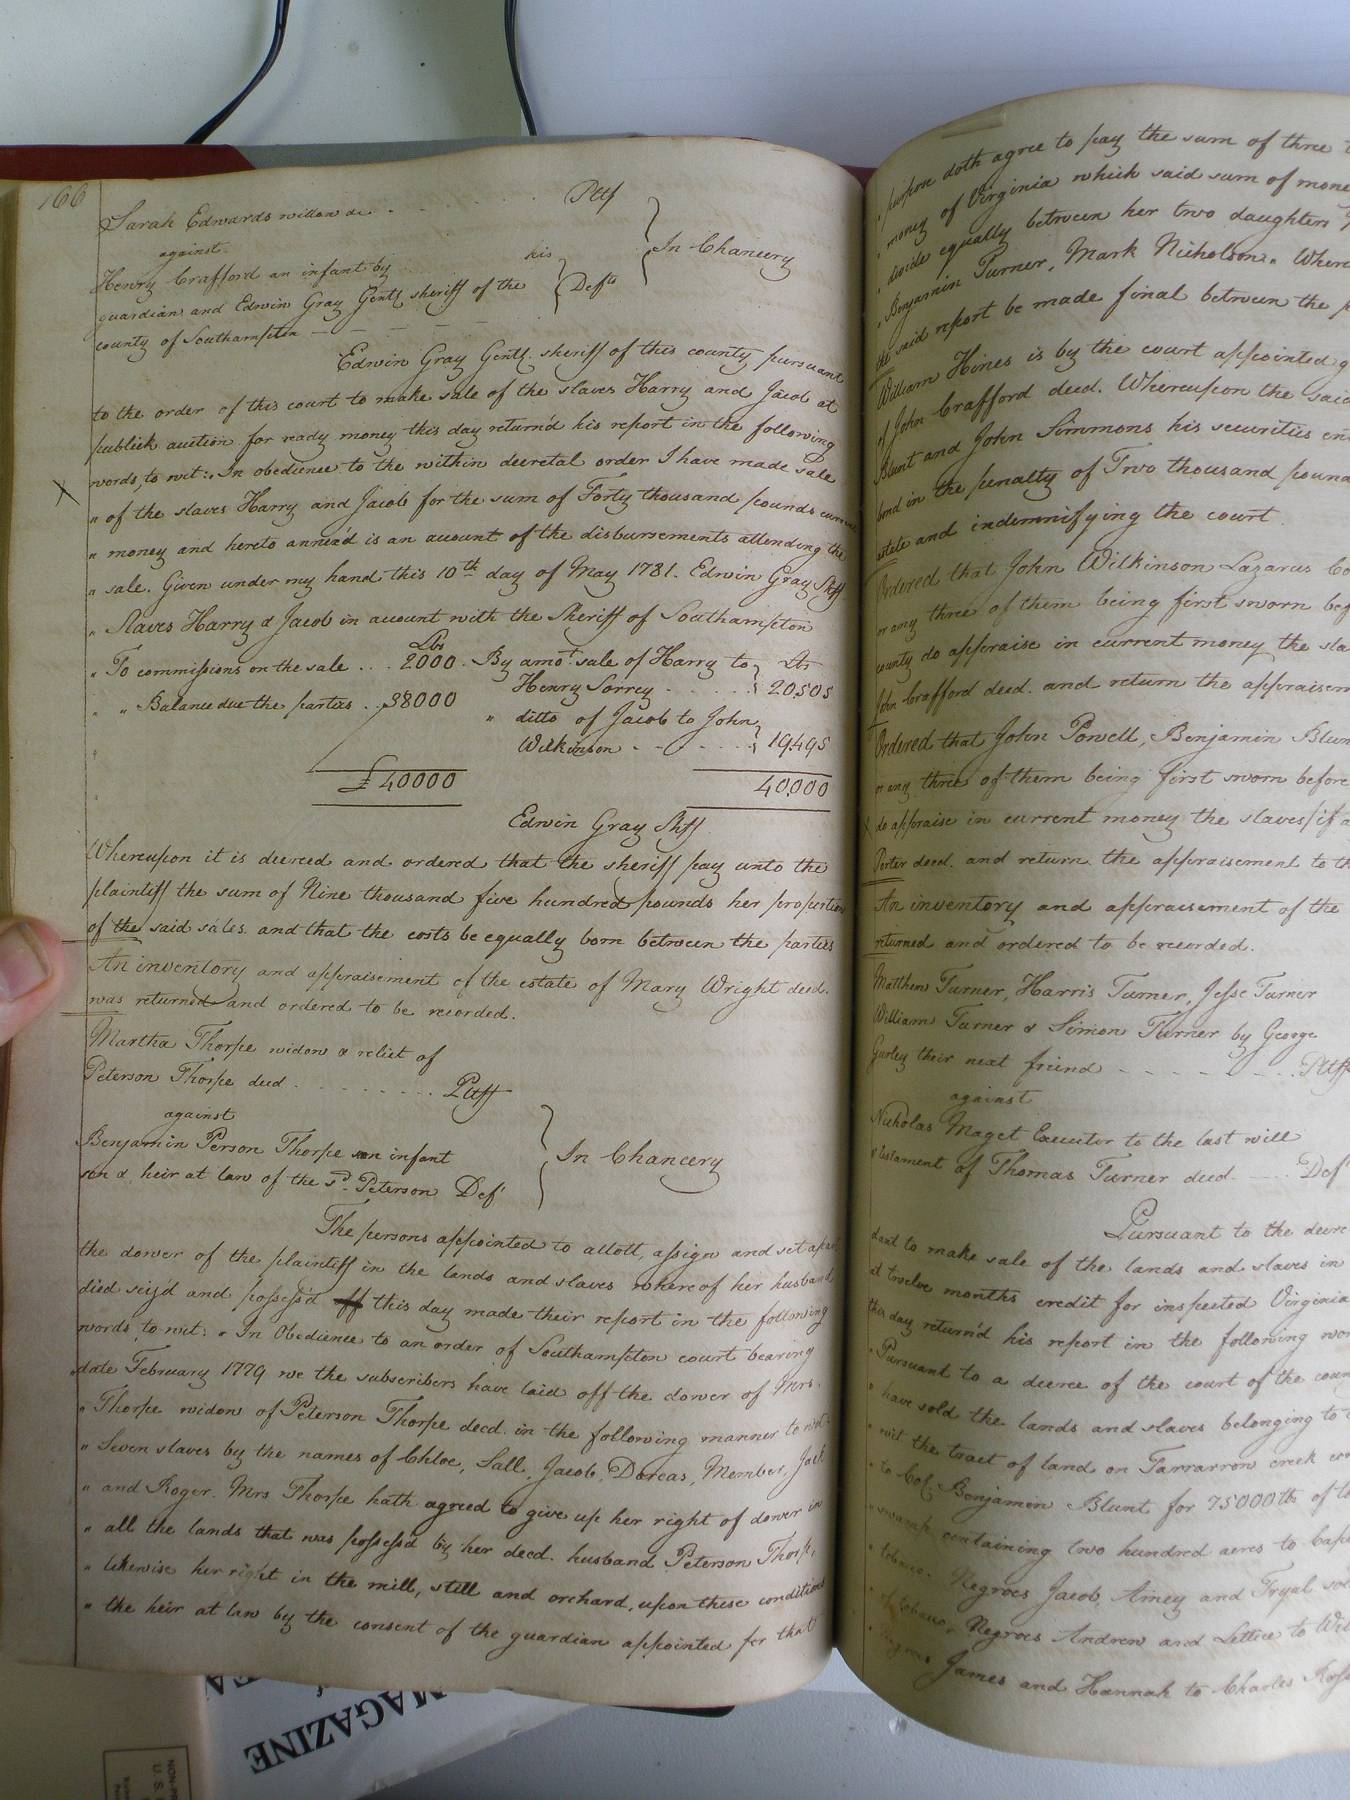 166
Sarah Edwards widow &c - - - - - Pltf
against
Henry Crafford an infant by his
guardian and Edwin Gray Gentl. sheriff of the } Defts
county of Southampton - - - - -
} In Chancery
Edwin Gray Gentl. sheriff of this county pursuant
to the order of this court to make sale of the slaves Harry and Jacob at
publick auction for ready money this day return'd his report in the following
words, to wit: "In obedience to the within decretal order I have made sale
" of the slaves Harry and Jacob for the sum of Forty thousand pounds current
" money and hereto annex'd is an account of the disbursements attending the
" sale. Given under my hand this 10th day of May 1781. Edwin Gray Shff
" Slaves Harry & Jacob in account with the Sheriff of Southampton
" To commissions on the sale ... 2000. By amot. sale of Harry to }
Henry Sorrey - - - - - } 20.505
" " Balance due the parties .. 38000
" ditto of Jacob to John }
Wilkinson - - - - - } 19.495
£ 40000 40.000
Edwin Gray Shff
Whereupon it is decreed and ordered that the sheriff pay unto the
plaintiff the sum of Nine thousand five hundred pounds her proportion
of the said sales. and that the costs be equally born between the parties
An inventory and appraisement of the estate of Mary Wright decd.
was returned and ordered to be recorded.
Martha Thorpe widow & relict of
Peterson Thorpe decd - - - - - Pltff
against
Benjamin Person Thorpe an infant
son & heir at law of the sd. Peterson Deft
} In Chancery
The persons appointed to allott, assign and set apart
the dower of the plaintiff in the lands and slaves whereof her husband
died seiz'd and possess'd this day made their report in the following
words, to wit: "In Obedience to an order of Southampton court bearing
" date February 1779 we the subscribers have laid off the dower of Mrs.
" Thorpe widow of Peterson Thorpe decd. in the following manner to wit
" Seven slaves by the names of Chloe, Sall, Jacob, Dorcas, Member, Jack
" and Roger. Mrs Thorpe hath agreed to give up her right of dower in
" all the lands that was possess'd by her decd. husband Peterson Thorpe,
" likewise her right in the mill, still and orchard, upon these conditions
" the heir at law by the consent of the guardian appointed for that
" purpose doth agree to pay the sum of three
" money of Virginia which said sum of money
" divide equally between her two daughters
" Benjamin Turner, Mark Nicholson." Where
the said report be made final between the
William Hines is by the court appointed
of John Crafford decd. Whereupon the said
Blunt and John Simmons his securities
bond in the penalty of Two thousand pounds
estate and indemnifying the court.
Ordered that John Wilkinson Lazarus
or any three of them being first sworn
county do appraise in current money the
John Crafford decd. and return the
Ordered that John Powell, Benjamin Blunt
or any three of them being first sworn before
do appraise in current money the slaves (if
Porter decd. and return the appraisement to
An inventory and appraisement of the
returned and ordered to be recorded.
Matthew Turner, Harris Turner, Jesse Turner
William Turner & Simon Turner by George
Gurley their next friend - - - - - Pltffs
against
Nicholas Maget Executor to the last will
& testament of Thomas Turner decd. - - - Deft
Pursuant to the
to make sale of the lands and slaves in
at twelve months credit for inspected Virginia
this day return'd his report in the following
" Pursuant to a decree of the court of the
" have sold the lands and slaves belonging to
" wit the tract of land on Tarrarow creek
" to Col. Benjamin Blunt for 75000lb of
" swamp containing two hundred acres to
" tobacco. Negroes Jacob, Amey and Tryal
" of tobacco, Negroes Andrew and Lettice to
" Negroes James and Hannah to Charles
MAGAZINE
U.S.